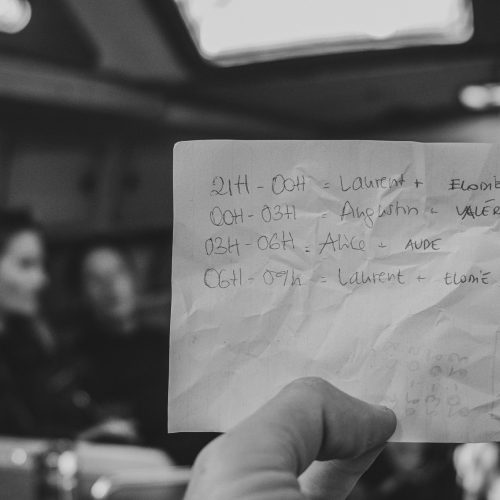 21H - 00H = Laurent + ELODIE
00H - 03H = Augustin - VALÉR
03H - 06H = Alice - AUDE
06H - 09h = Laurent + ELODIE